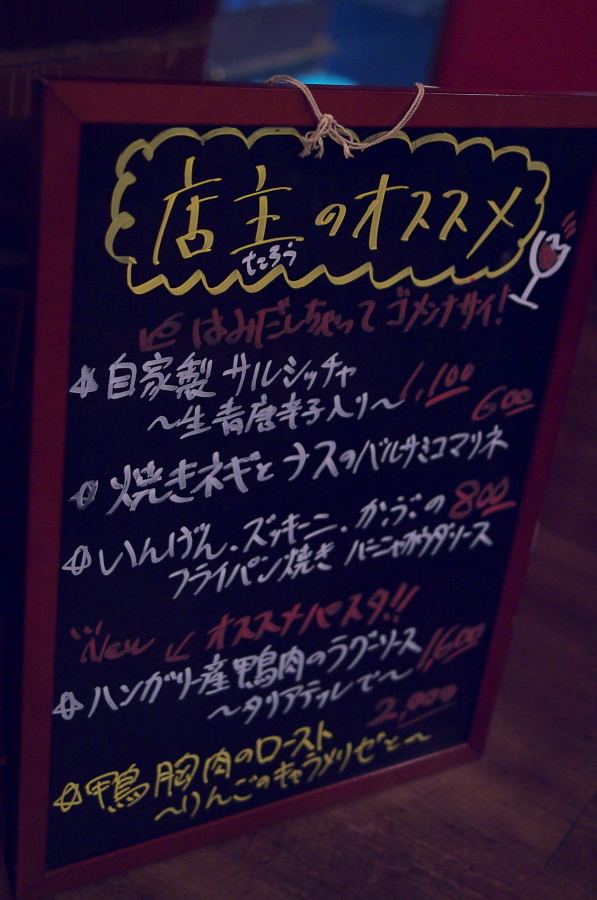 店主のオススメ
たろう
はみだしちゃってゴメンナサイ!
自家製サルシッチャ 1,100
～生青唐辛子入り～
600
焼きネギとナスのバルサミコマリネ
いんげん、ズッキーニ、かぶの 800
フライパン焼き バーニャカウダソース
New オススメパスタ!!
ハンガリー産鴨肉のラグーソース 1,600
～タリアテッレで～
2,000
鴨胸肉のロースト
～りんごのキャラメリゼと～